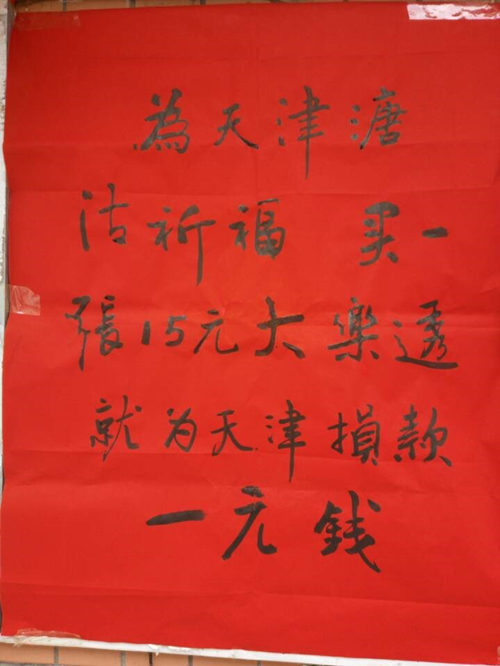 為天津溏
沽祈福 买一
張15元大樂透
就为天津損款
一元钱